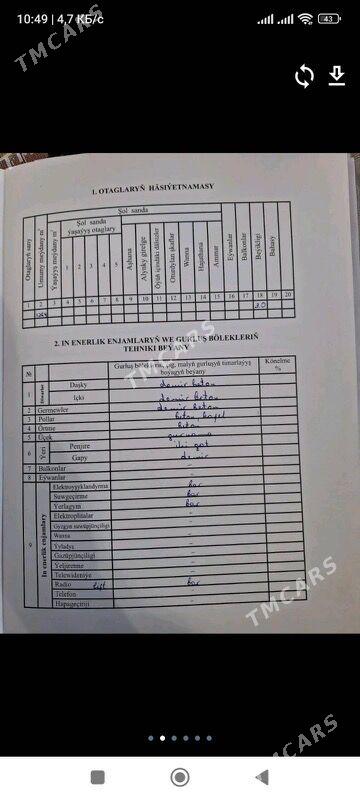 10:49 | 4,7 КБ/с
43
TMCARS
TMCARS
1. OTAGLARYŇ HÄSIÝETNAMASY
Otaglaryň sany
Umumy meýdany m²
Ýaşaýyş meýdany m²
Şol sanda
Şol sanda
ýaşaýyş otaglary
1 2 3 4 5
Aşhana
Alynky girelge
Öýüň içindäki dälizler
Oturdylan şkaflar
Wanna
Hajathana
Ammar
Eýwanlar
Balkonlar
Beýikligi
Bahasy
1 2 3 4 5 6 7 8 9 10 11 12 13 14 15 16 17 18 19 20
3.0
2. IN ENERLIK ENJAMLARYŇ WE GURLUŞ BÖLEKLERIŇ
TEHNIKI BEÝANY
№
boýagyň beýany
Könelme
%
1
Daşky demir beton
Içki demir beton
2 Germewler demir beton
3 Pollar beton, kafel
4 Örtme beton
5 Üçek
6
Penjire iki gat
Gapy demir
7 Balkonlar -
8 Eýwanlar -
9
In enerlik enjamlary
Elektroýyşyklandyrma bar
Suwgeçirme bar
Ýerlagym bar
Elektroplitalar -
Gyzgyn suwüpjünçiligi -
Wanna -
Ýyladyş -
Gazüpjünçiligi -
Ýeljiretme -
Telewideniýe -
Radio lift bar
Telefon -
Hapageçiriji -
TMCARS
TMCARS
TMCARS